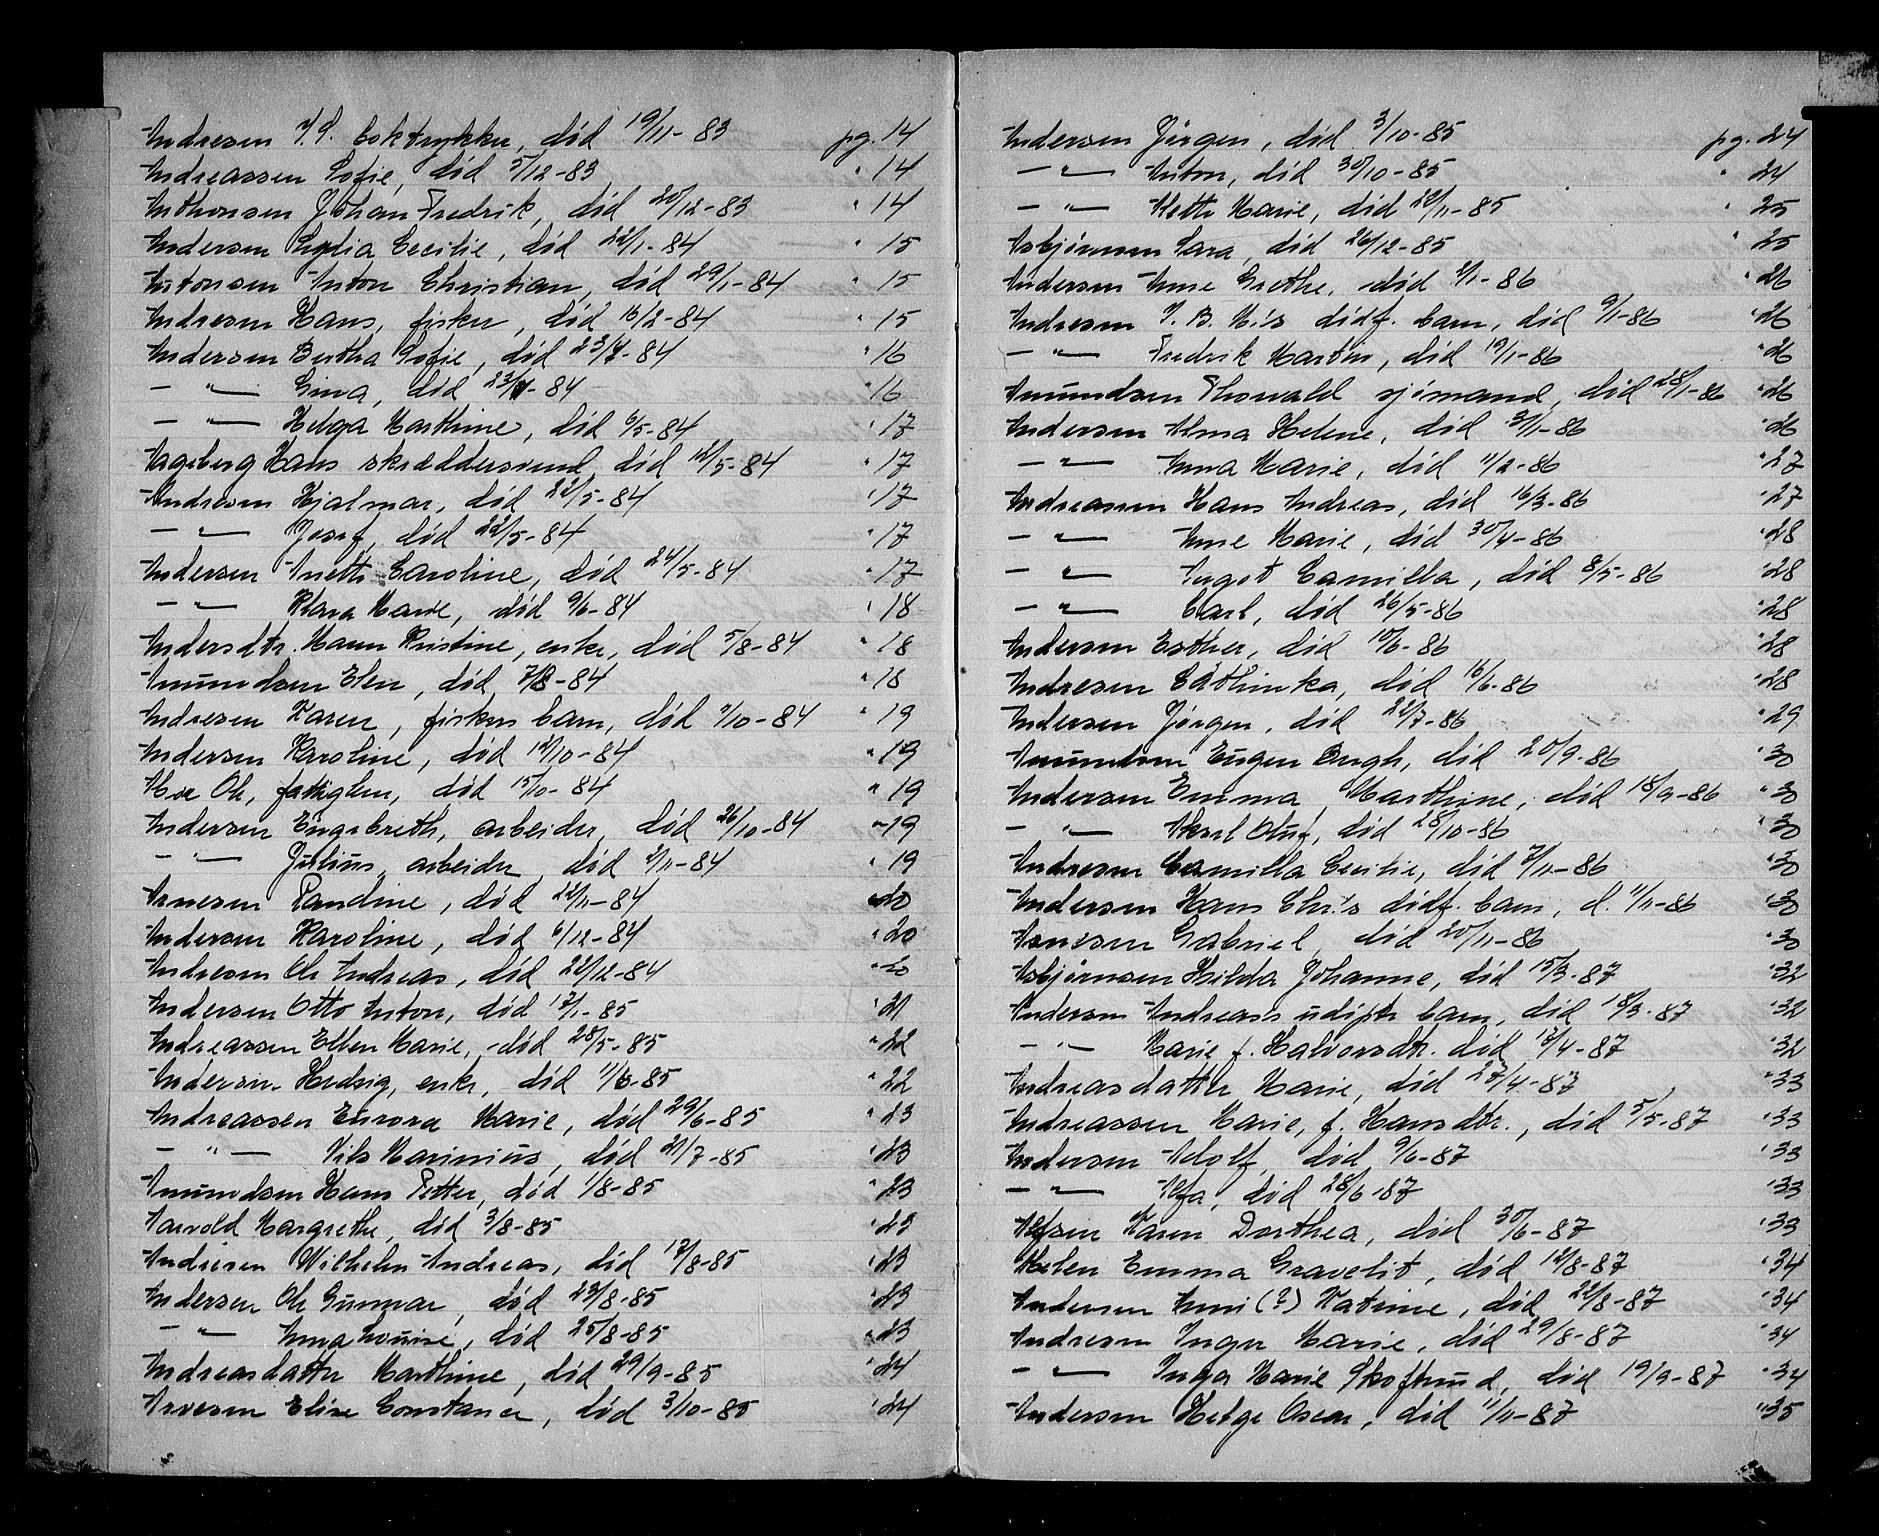 Andresen J. S. boktrykker, død 19/11-83 pg. 14
Andreassen Sofie, død 5/12-83 " 14
Anthonsen Johan Fredrik, død 20/12-83 " 14
Andersen Sylia Cecilie, død 22/1-84 " 15
Antonsen Anton Christian, død 29/1-84 " 15
Andresen Hans, fisker, død 16/2-84 " 15
Andersen Bertha Sofie, død 23/4-84 " 16
— " — Gina, død 23/4-84 " 16
— " — Helga Marthine, død 6/5-84 " 17
Aageberg Hans skræddersvend, død 12/5-84 " 17
Andresen Hjalmar, død 22/5-84 " 17
— " — Josef, død 22/5-84 " 17
Andersen Anette Caroline, død 24/5-84 " 17
— " — Klara Marie, død 9/6-84 " 18
Andersdtr. Maren Kristine, enke, død 5/8-84 " 18
Amundsen Elen, død 7/8-84 " 18
Andresen Karen, fiskers barn, død /10-84 " 19
Andersen Karoline, død 12/10-84 " 19
Ole, fattiglem, død 15/10-84 " 19
Andersen Engebreth, arbeider, død 26/10-84 " 19
— " — Julius, arbeider, død 2/11-84 " 19
Arnesen Pandine, død 22/11-84 20
Andersen Karoline, død 6/12-84 " 20
Andresen Ole Andreas, død 22/12-84 " 20
Andersen Otto Anton, død 17/1-85 " 21
Andreassen Ellen Marie, død 28/5-85 " 22
Andersen Hedvig, enke, død 11/6-85 " 22
Andreassen Eurora Marie, død 29/6-85 " 23
— " — Nils Marinius, død 21/7-85 " 23
Amundsen Hans Petter, død 1/8-85 " 23
Aarvold Margrethe, død 3/8-85 " 23
Andresen Wilhelm Andreas, død 17/8-85 " 23
Andersen Ole Gunnar, død 23/8-85 " 23
— " — Anna Louise, død 25/8-85 " 23
Andreasdatter Marthine, død 29/9-85 " 24
Arvesen Elise Constance, død 3/10-85 " 24
Andersen Jørgen, død 3/10-85 pg. 24
— " — Anton, død 30/10-85 " 24
— " — Mette Marie, død 22/11-85 " 25
Asbjørnsen Sara, død 26/12-85 " 25
Andersen Anne Grethe, død /1-86 " 26
Andresen J. B. M.'s dødf. barn, død 9/1-86 " 26
— " — Fredrik Martin, død 19/1-86 " 26
Amundsen Thorvald sjømand, død 28/1-86 " 26
Andersen Alma Helene, død 31/1-86 " 26
— " — Anna Marie, død 11/2-86 " 27
Andreassen Hans Andreas, død 16/3-86 " 27
— " — Anne Marie, død 30/4-86 " 28
— " — Aagot Camilla, død 8/5-86 " 28
— " — Carl, død 26/5-86 " 28
Andersen Esther, død 10/6-86 " 28
Andresen Cathinka, død 16/6-86 " 28
Andersen Jørgen, død 22/7-86 " 29
Amundsen Eugen Bergh, død 20/9-86 " 30
Andersen Emma Marthine, død 18/9-86 " 30
— " — Aksel Oluf, død 28/10-86 " 30
Andresen Camilla Cecilie, død 7/11-86 " 30
Andersen Hans Chr.'s dødf. barn, d. 11/11-86 " 30
Arnesen Gabriel, død 20/11-86 " 30
Asbjørnsen Hilda Johanne, død 15/3-87 " 32
Andersen Andreas's udøpte barn, død 18/3-87 " 32
— " — Marie f. Halvorsdtr. død 12/4-87 " 32
Andreasdatter Marie, død 27/4-87 " 33
Andreassen Marie, f. Hansdtr., død 5/5-87 " 33
Andersen Adolf, død 9/6-87 " 33
— " — Alfa, død 28/6-87 " 33
Alfsen Karen Dorthea, død 30/6-87 " 33
Emma Gravelit, død 12/8-87 " 34
Andersen Anni (?) Katrine, død 22/8-87 " 34
Andresen Inger Marie, død 29/8-87 " 34
— " — Inga Marie Skoftrud, død 19/9-87 " 34
Andersen Helge Oscar, død 11/11-87 " 35